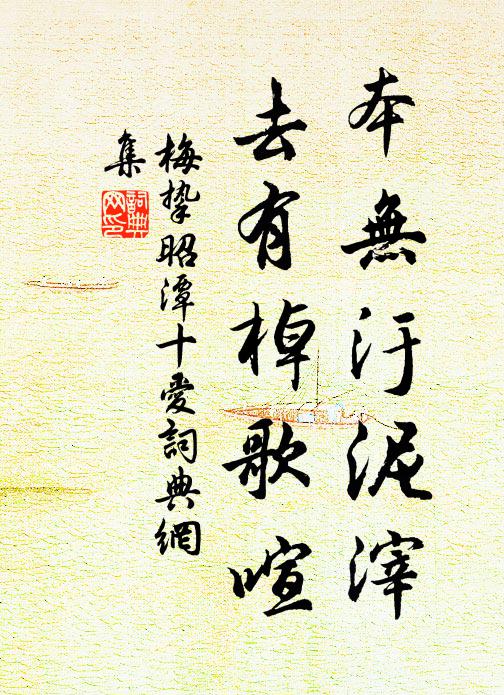 本無汙泥滓
去有棹歌喧
梅摯昭潭十愛詞典網
集
詞典
网印